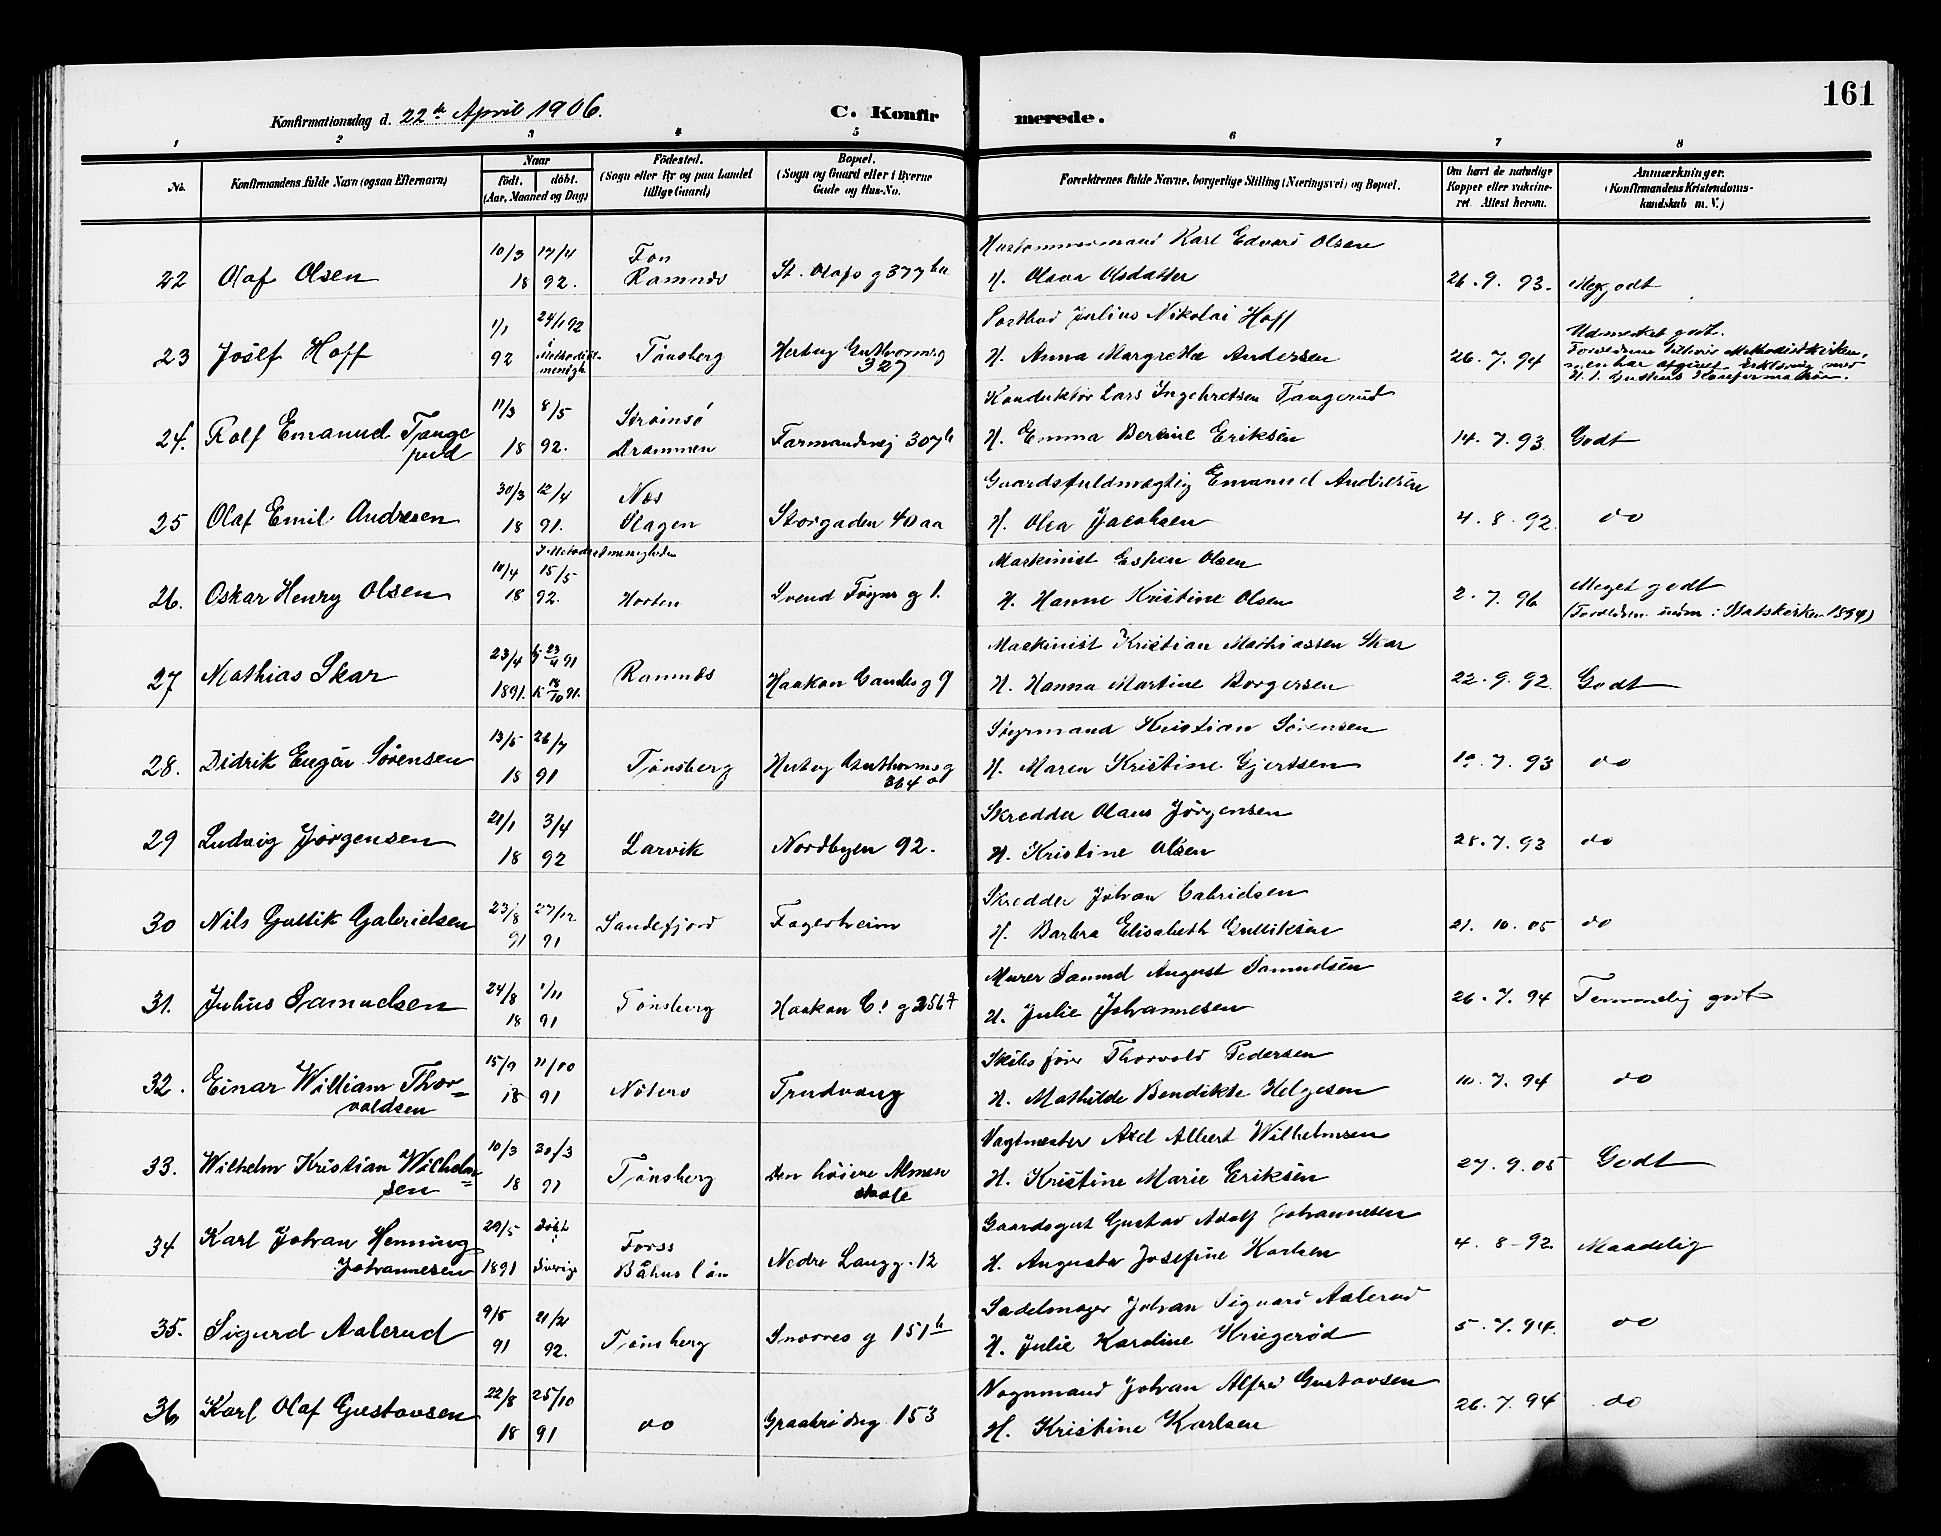 161
Konfirmationsdag d. 22de April 1906.
C. Konfirmerede.
1 2 3 4 5 6 7 8
No.
Konfirmandens fulde Navn (ogsaa Efternavn)
Naar
födt. döbt.
(Aar, Maaned og Dag)
Födested.
(Sogn eller By og paa Landet tillige Gaard)
Bopæl.
(Sogn og Gaard eller i Byerne Gade og Hus-No.
Forældrenes fulde Navne, borgerlige Stilling (Næringsvei) og Bopæl.
Om havt de naturlige Kopper eller vaccineret. Attest herom.
Anmærkninger.
(Konfirmandens Kristendomskundskab m. V.)
22 Olaf Olsen 10/3 17/4 18 92. Fon Ramnes St. Olafs g 377
Hustømmermand Karl Edvard Olsen
H. Olava Olsdatter 26.9.93. Meg. godt
23 Josef Hoff 1/1 92 24/1 92 i Methodistmenigh. Tønsberg Hertug Guthormsg 327
Postbud Julius Nikolai Hoff
H. Anna Margrethe Andersen 26.7.94
Udmerket godt.
Forældrene tilhører Methodistkirken,
men har afgivet Erklæring
24. Rolf Emanuel Tangerud 11/3 8/5 18 92. Strømsø Drammen Farmandsvej 307b
Konduktør Lars Ingebretsen Tangerud
H. Emma Bertine Eriksen 14.7.93 Godt
25 Olaf Emil Andresen 30/3 12/4 18 91. Nes Slagen Storgaden 40 aa
Gaardsfuldmægtig Emanuel Andresen
H. Olea Jacobsen 4.8.92. do
26. Oskar Henry Olsen 10/4 15/5 18 92. I Metodistmenigheden Horten Svend Føyns g 1.
Maskinist Espen Olsen
H. Hanne Kristine Olsen 2.7.96 Meget godt
27 Mathias Skar 23/4 1891. Hj 23/4 91 K 18/10 91. Ramnes Haakon Gamles g 9
Maskinist Kristian Mathiassen Skar
H. Hanna Martine Borgersen 22.9.92. Godt
28. Didrik Eugen Sørensen 13/5 26/7 18 91 Tønsberg Hertug Guthorms g 364 a
Styrmand Kristian Sørensen
H. Maren Kristine Gjertsen 10.7.93 do
29 Ludvig Jørgensen 21/1 3/4 18 92 Larvik Nordbyen 92.
Skredder Olaus Jørgensen
H. Kristine Olsen 28.7.93 do
30 Nils Gullik Gabrielsen 23/8 27/12 91 91 Sandefjord Fagerheim
Skredder Johan Gabrielsen
H. Barbra Elisabeth Gulliksen 21.10.05 do
31. Julius Samuelsen 24/8 1/11 18 91 Tønsberg Haakon G! g 256
Murer Samuel August Samuelsen
H. Julie Johannesen 26.7.94 Temmelig godt
32. Einar William Thorvaldsen 15/9 11/10 18 91 Nøterø Trudvang
Skibsfører Thorvald Pedersen
H. Mathilde Bendikte Helgesen 10.7.94 do
33. Wilhelm Kristian Wilhelmsen 10/3 30/3 18 91 Tønsberg Den høiere Almenskole
Vagtmester Axel Albert Wilhelmsen
H. Kristine Marie Eriksen 27.9.05 Godt
34 Karl Johan Henning Johannesen 29/5 1891 Døbt i Sverige Forss Båhus län Nedre Langg. 12
Gaardsgut Gustav Adolf Johannesen
H. Augusta Josefine Karlsen 4.8-92. Maadelig
35. Sigurd Aalerud 9/5 91 21/2 92. Tønsberg Snorres g 151 b
Sadelmager Johan Sigvard Aalerud
H. Julie Karoline Kriegerød 5.7.94. do
36 Karl Olaf Gustavsen 22/8 25/10 18 91 do Graabrødreg. 153
Vognmand Johan Alfred Gustavsen
H. Kristine Karlsen 26.7.94 do